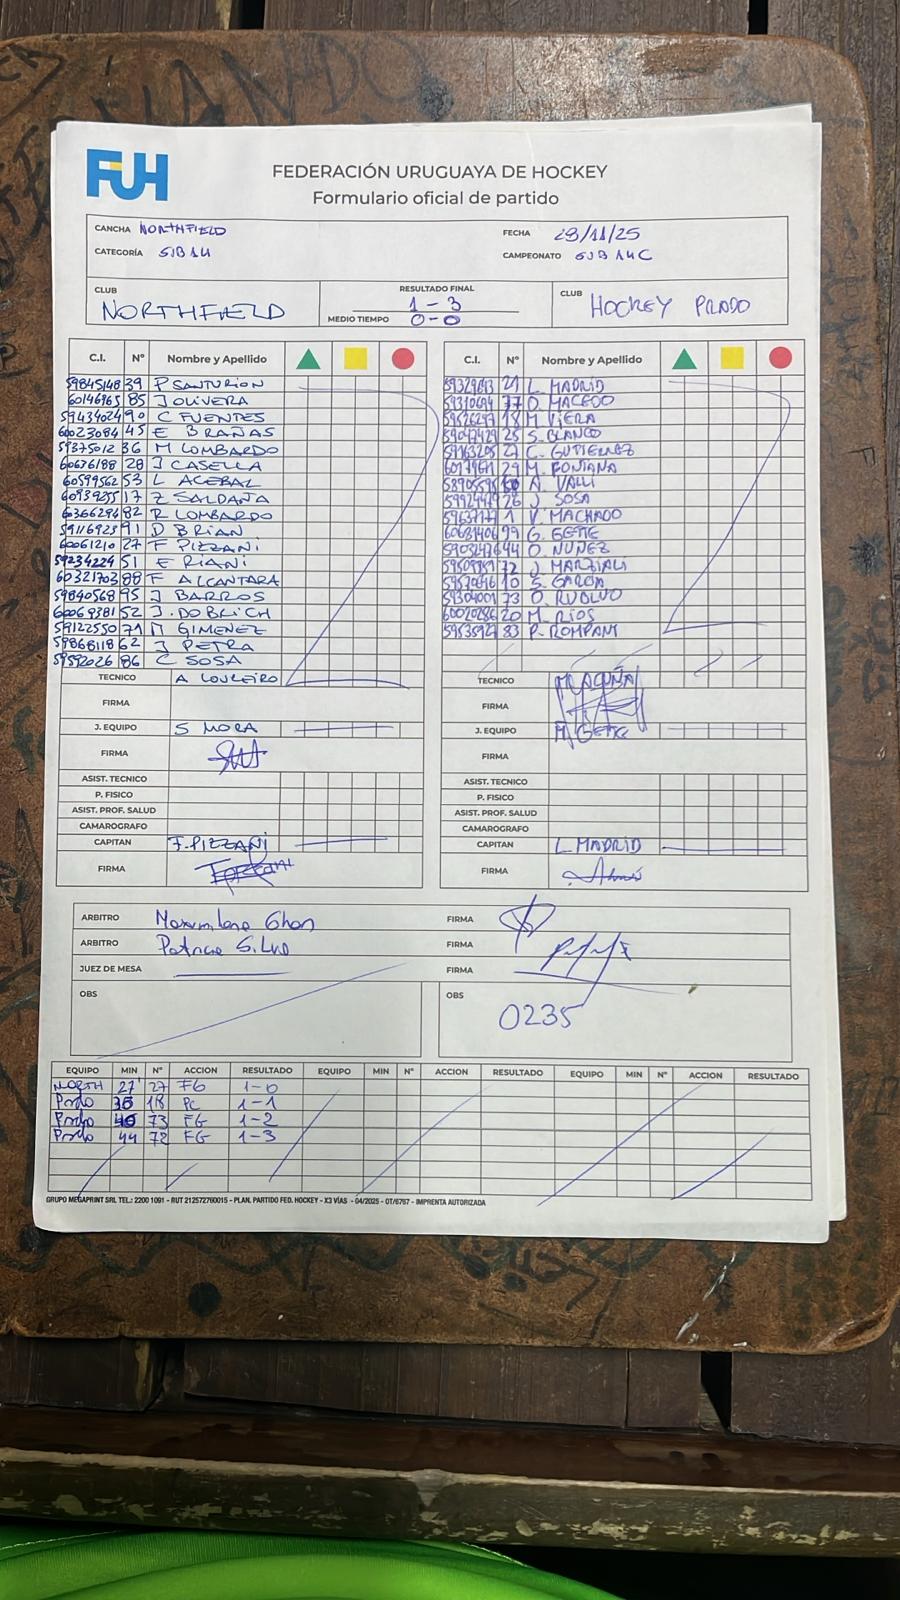 FUH
FEDERACIÓN URUGUAYA DE HOCKEY
Formulario oficial de partido
CANCHA NORTHFIELD
FECHA 29/11/25
CATEGORÍA SUB 14
CAMPEONATO SUB 14C
CLUB NORTHFIELD
RESULTADO FINAL 1-3
MEDIO TIEMPO 0-0
CLUB HOCKEY PRADO
C.I. Nº Nombre y Apellido
59845148 39 P SANTURION
60146965 85 J OLIVERA
59434024 90 C FUENTES
60023084 45 E BRAÑAS
59375012 36 M LOMBARDO
60676188 28 J CASELLA
60599562 53 L ACEBAL
60939255 17 Z SALDAÑA
60366294 82 R LOMBARDO
59116923 91 D BRIAN
60061210 27 F PIZZANI
59234224 51 E RIANI
60321703 88 F ALCANTARA
59840568 95 J BARROS
60069381 52 J. DOBRICH
59122550 71 M GIMENEZ
59868118 62 J PETRA
59592026 86 C SOSA
TECNICO A LOUREIRO
FIRMA
J. EQUIPO S MORA
FIRMA
ASIST. TECNICO
P. FISICO
ASIST. PROF. SALUD
CAMAROGRAFO
CAPITAN F. PIZZANI
FIRMA
C.I. Nº Nombre y Apellido
L. MADRID
77 O. MACEDO
18 M. VIERA
25 S. BLANCO
C. GUTIERREZ
29 M. FONTANA
A. VALLI
26 J. SOSA
1 V. MACHADO
99 G. GETTE
44 O. NUÑEZ
72 J. MARZIALI
10 S. GARCIA
73 O. RUOLVO
60020286 20 M. RIOS
83 P. ROMPANI
TECNICO M. ACUÑA
FIRMA
J. EQUIPO M. GETTE
FIRMA
ASIST. TECNICO
P. FISICO
ASIST. PROF. SALUD
CAMAROGRAFO
CAPITAN L MADRID
FIRMA
ARBITRO FIRMA
ARBITRO Patricio Silva FIRMA
JUEZ DE MESA FIRMA
OBS
OBS 0235
EQUIPO MIN Nº ACCION RESULTADO EQUIPO MIN Nº ACCION RESULTADO EQUIPO MIN Nº ACCION RESULTADO
NORTH 27' 27 FG 1-0
Prado 18 PC 1-1
Prado 73 FG 1-2
Prado 44 72 FG 1-3
GRUPO MEGAPRINT SRL TEL.: 2200 1091 - RUT 212572760015 - PLAN. PARTIDO FED. HOCKEY - X3 VÍAS - 04/2025 - OT/6767 - IMPRENTA AUTORIZADA